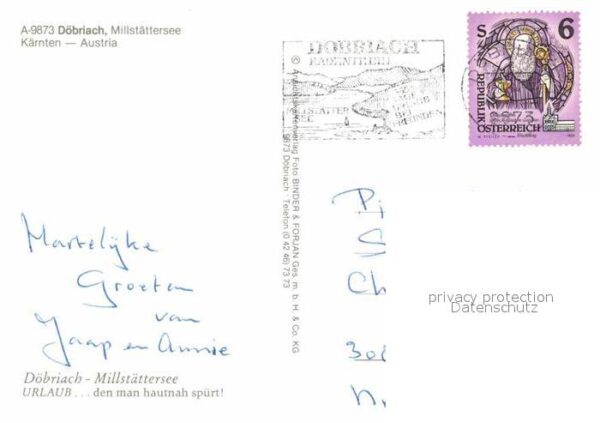 A-9873 Döbriach, Millstättersee
Kärnten — Austria
DÖBRIACH
RADENTHEIN
6
S
REPUBLIK
ÖSTERREICH
9873
© Ansichtskartenverlag Foto BINDER & FORJAN Ges. m. b. H. & Co. KG
9873 Döbriach · Telefon (0 42 46) 73 73
Hartelijke
Groeten
van
Jaap en Annie
Döbriach - Millstättersee
URLAUB . . . den man hautnah spürt!
Ch
privacy protection
Datenschutz